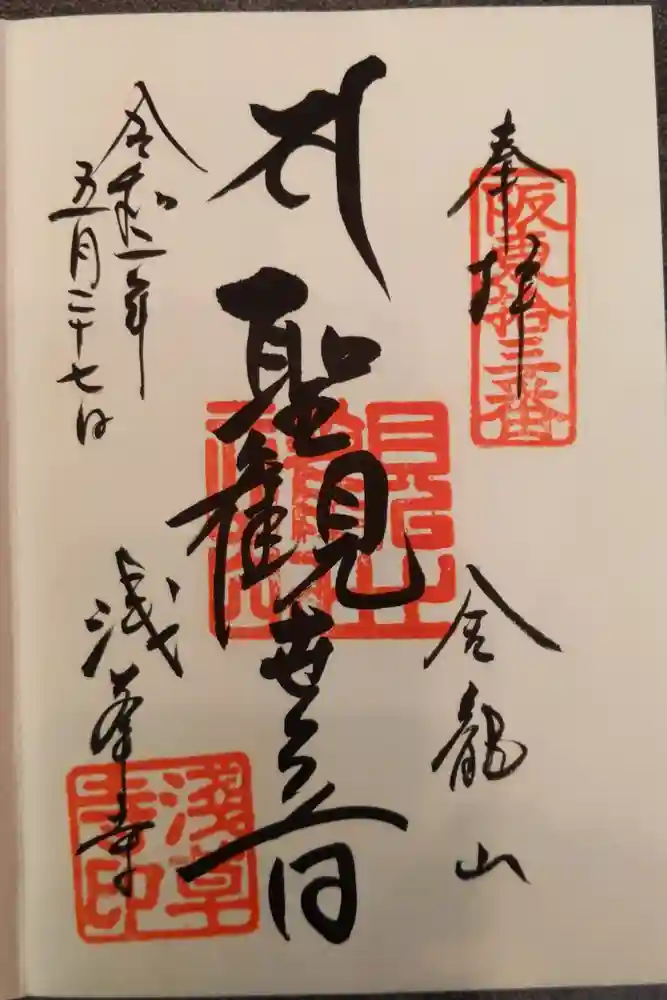 奉拝
阪東拾三番
金龍山
聖観世音
令和二年
五月二十七日
浅草寺
淺草寺印